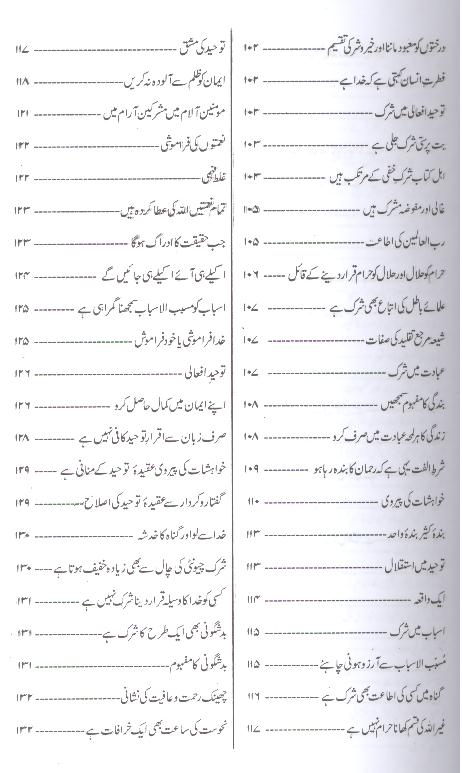 درختوں کو معبود ماننا اور خیر و شر کی تقسیم ---------------- ۱۰۲
فطرت انسان کہتی ہے کہ خدا ہے ---------------- ۱۰۲
توحید افعالی میں شرک ---------------- ۱۰۳
بت پرستی شرک جلی ہے ---------------- ۱۰۳
اہل کتاب شرک خفی کے مرتکب ہیں ---------------- ۱۰۳
غالی اور مفوضہ مشرک ہیں ---------------- ۱۰۵
رب العالمین کی اطاعت ---------------- ۱۰۵
حرام کو حلال اور حلال کو حرام قرار دینے کے قائل ------ ۱۰۶
علمائے باطل کی اتباع بھی شرک ہے ---------------- ۱۰۷
شیعہ مرجع تقلید کی صفات ---------------- ۱۰۷
عبادت میں شرک ---------------- ۱۰۷
بندگی کا مفہوم سمجھیں ---------------- ۱۰۸
زندگی کا ہر لمحہ عبادت میں صرف کرو ---------------- ۱۰۸
شرط الفت یہی ہے کہ رحمان کا بندہ رہا ہو ---------------- ۱۰۹
خواہشات کی پیروی ---------------- ۱۱۰
بندۂ کثیر بندۂ واحد ---------------- ۱۱۳
توحید میں استقلال ---------------- ۱۱۳
ایک واقعہ ---------------- ۱۱۴
اسباب میں شرک ---------------- ۱۱۵
مُسبّب الاسباب سے آرزو ہونی چاہئے ---------------- ۱۱۵
گناہ میں کسی کی اطاعت بھی شرک ہے ---------------- ۱۱۶
غیر اللہ کی قسم کھانا حرام نہیں ہے ---------------- ۱۱۷
توحید کی مشق ---------------- ۱۱۷
ایمان کو ظلم سے آلودہ نہ کریں ---------------- ۱۱۸
مومنین آلام میں مشرکین آرام میں ---------------- ۱۲۱
نعمتوں کی فراموشی ---------------- ۱۲۲
غلط فہمی ---------------- ۱۲۲
تمام نعمتیں اللہ کی عطا کردہ ہیں ---------------- ۱۲۳
جب حقیقت کا ادراک ہوگا ---------------- ۱۲۳
اکیلے ہی آئے اکیلے ہی جائیں گے ---------------- ۱۲۴
اسباب کو مسبب الاسباب سمجھنا گمراہی ہے ---------------- ۱۲۵
خدا فراموشی یا خود فراموشی ---------------- ۱۲۵
توحید افعالی ---------------- ۱۲۶
اپنے ایمان میں کمال حاصل کرو ---------------- ۱۲۶
صرف زبان سے اقرار توحید کافی نہیں ہے ---------------- ۱۲۸
خواہشات کی پیروی عقیدۂ توحید کے منافی ہے ------ ۱۲۹
گفتار و کردار سے عقیدۂ توحید کی اصلاح ---------------- ۱۲۹
خدا سے لو اور گناہ کا خدشہ ---------------- ۱۳۰
شرک چیونٹی کی چال سے بھی زیادہ خفیف ہوتا ہے ------ ۱۳۰
کسی کو خدا کا وسیلہ قرار دینا شرک نہیں ہے ---------------- ۱۳۱
بدشگونی بھی ایک طرح کا شرک ہے ---------------- ۱۳۱
بدشگونی کا مفہوم ---------------- ۱۳۱
چھینک رحمت و عافیت کی نشانی ---------------- ۱۳۲
نحوست کی ساعت بھی ایک خرافات ہے ---------------- ۱۳۲